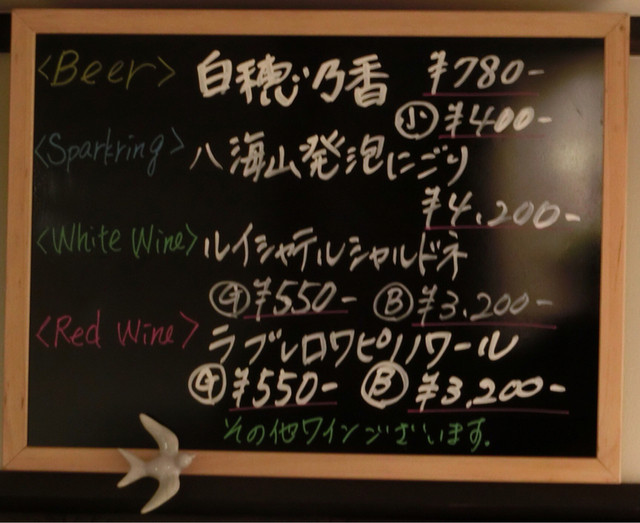 <Beer> 白穂乃香 ¥780-
小 ¥400-
<Sparkring> 八海山発泡にごり
¥4,200-
<White Wine> ルイジャデルシャルドネ
G ¥550- B ¥3,200-
<Red Wine> ラブレロワピノノワール
G ¥550- B ¥3,200-
その他ワインございます。